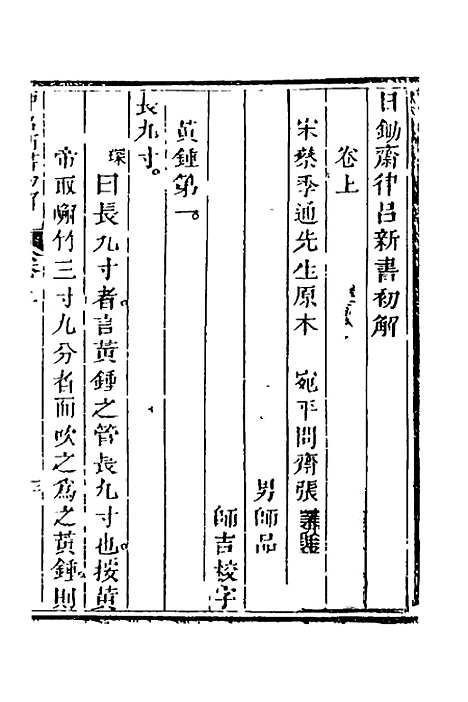 日鋤齋律呂新書初解
卷上
宋蔡季通先生原本　宛平問齋張
男師品
師吉校字
黃鍾第一。
長九寸。
琛曰長九寸者言黃鍾之管長九寸也按黃
帝取嶰竹三寸九分者而吹之為之黃鍾則